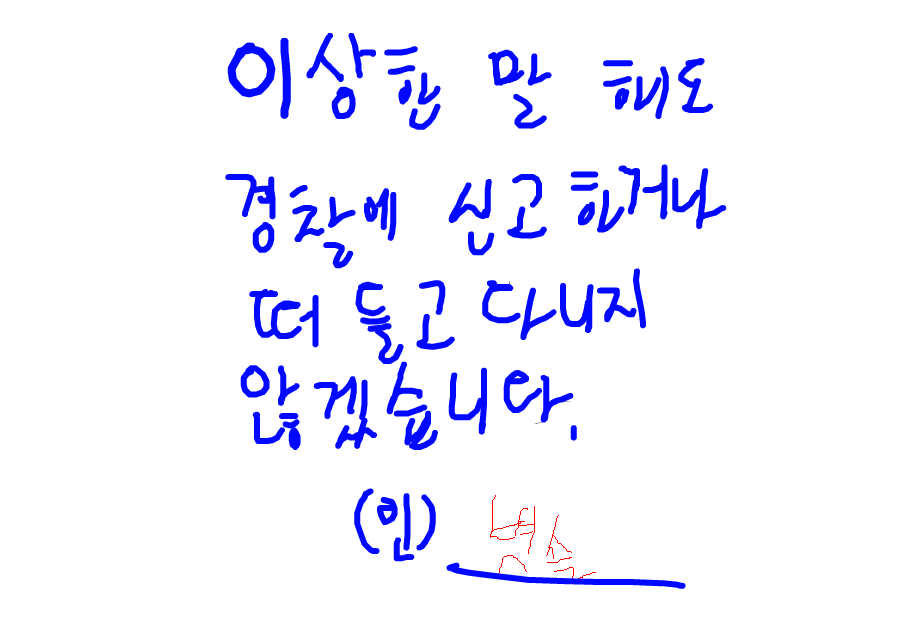 이상한 말 해도
경찰에 신고한거나
떠들고 다니지
않겠습니다.
(인)